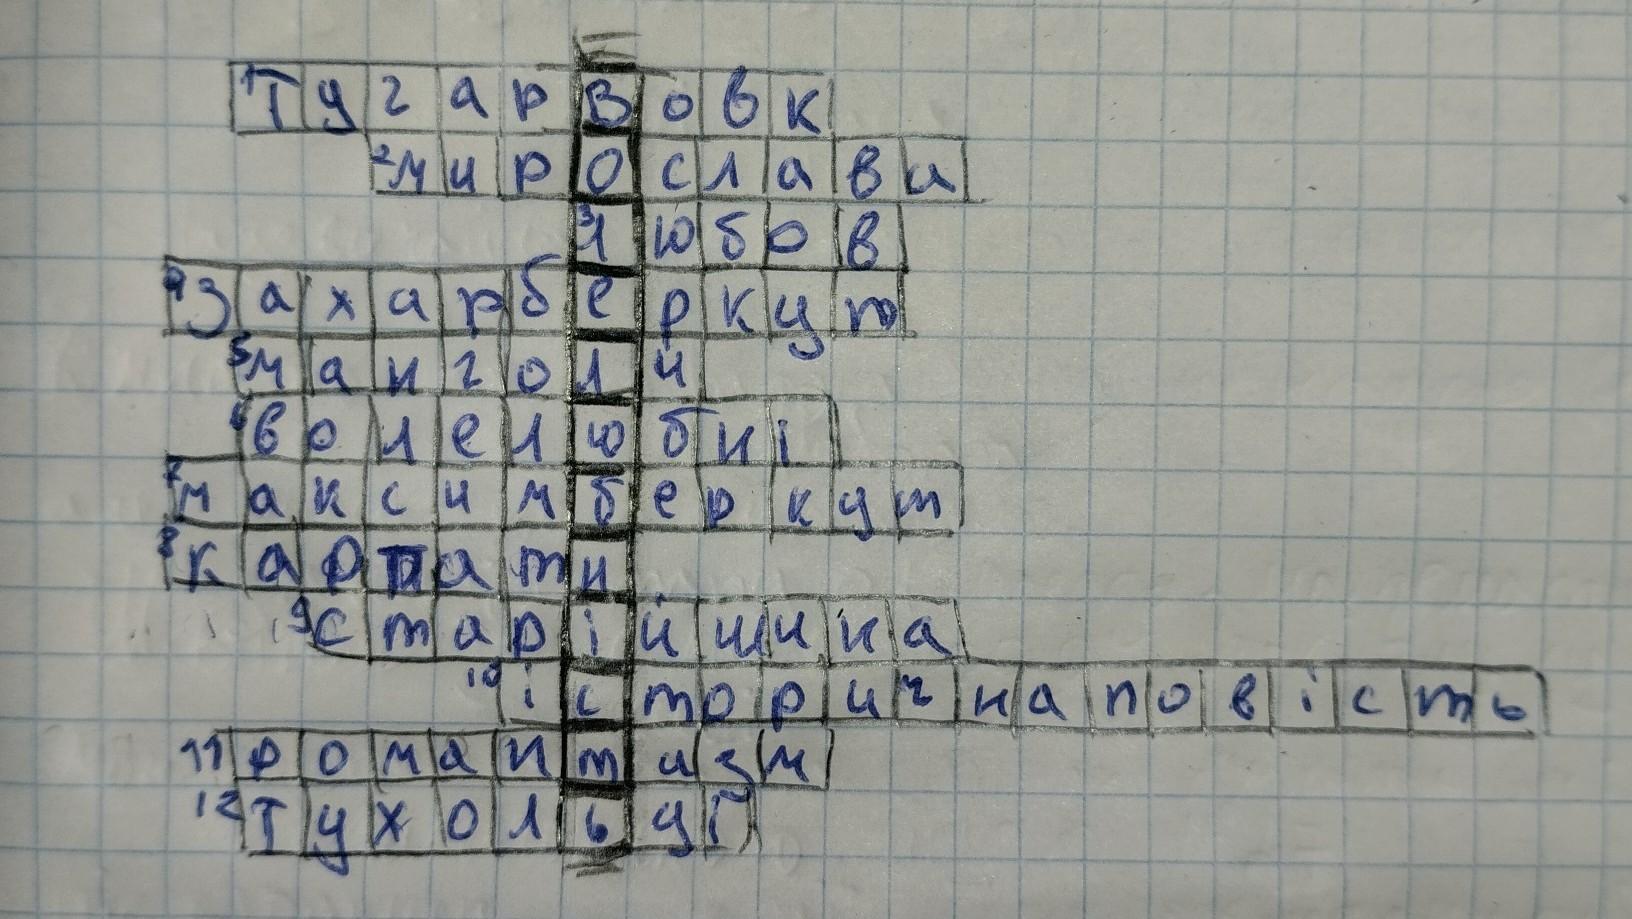 1Тугарвовк
2мирослава
3любов
4Захарберкут
5манголи
6волелюбні
7максимберкут
8карпати
9старійшина
10історичнаповість
11романтизм
12Тухольці